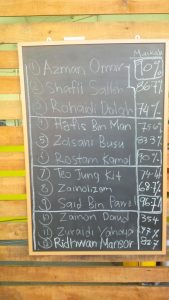 Markah
1) Azman Omar 90%
2) Shafii Salleh 86.7%
3) Rohaidi Dolah 74%
4) Hafis Bin Man 75.6%
5) Zolsani Busu 83.3%
6) Rostam Kamal 90%
7) Teo Jung Kit 74.4
8) Zainolizam
9) Said Bin
10) Zainon Daud
11) Zuraidi Yahaya
12) Ridhwan Mansor